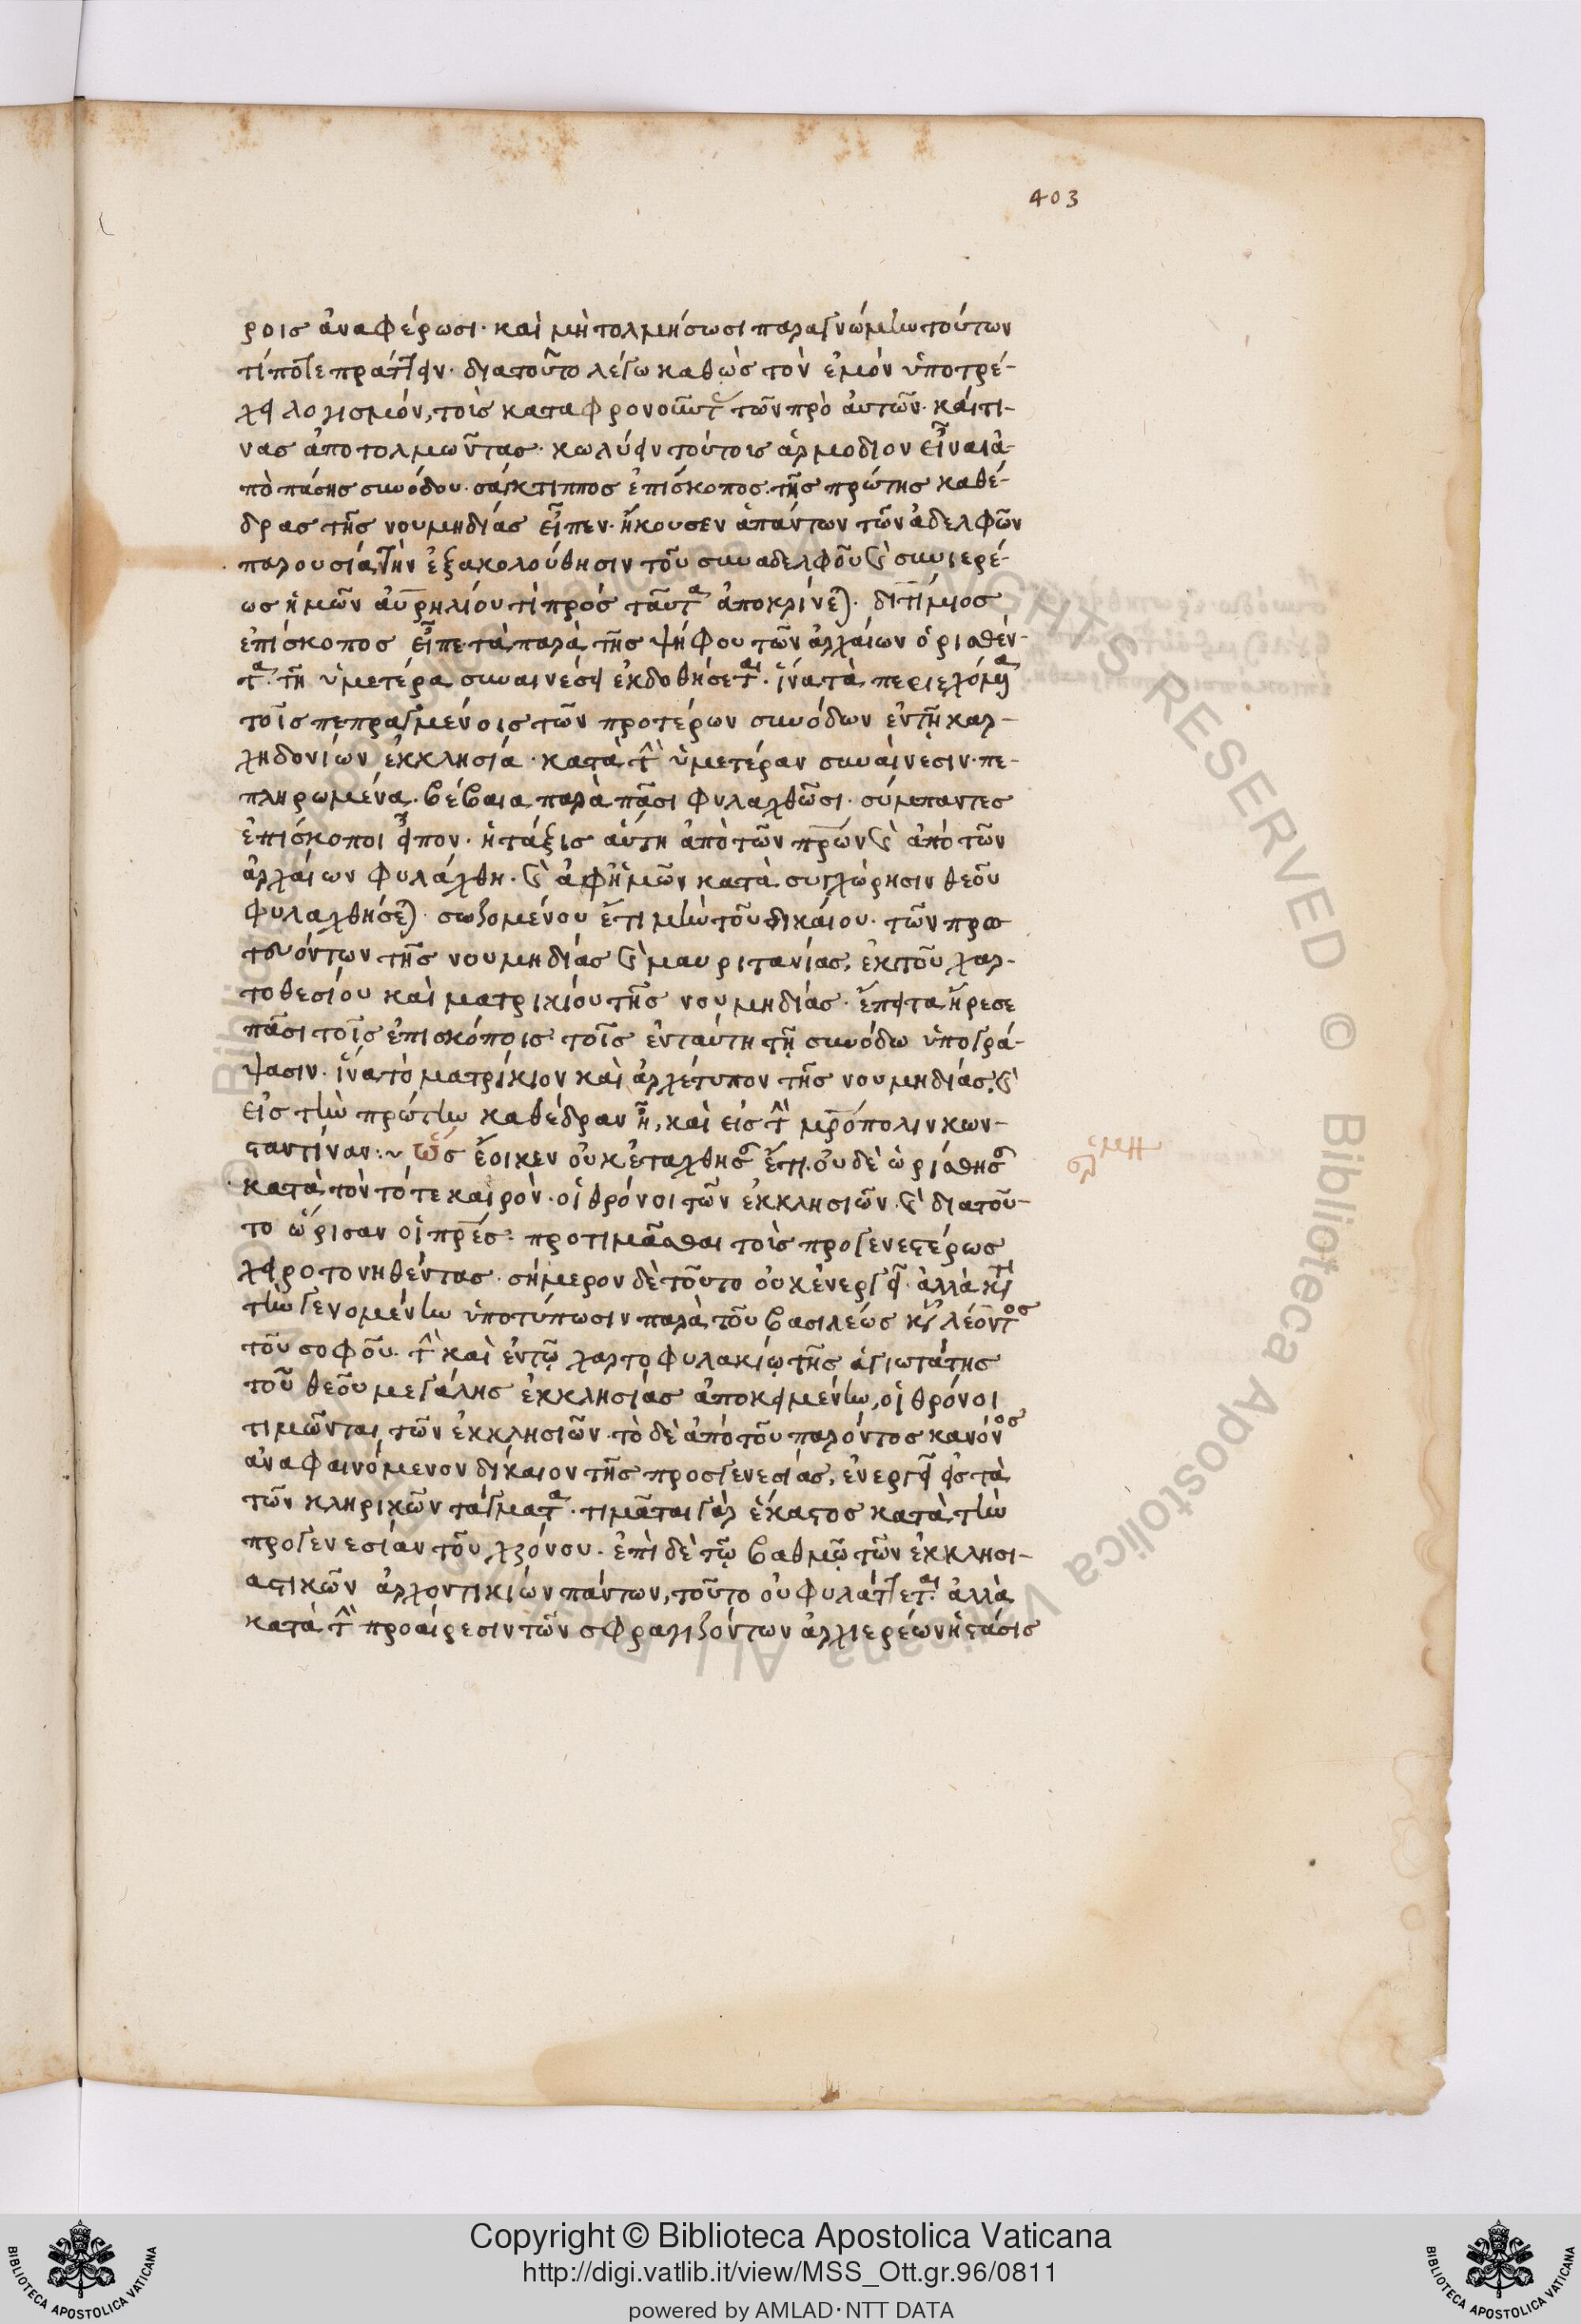 403
ροις ἀναφέρωσι· καὶ μὴ τολμήσωσι παρὰ γνώμην τούτων
τί ποτε πράττειν· διατοῦτο λέγω καθὼς τὸν ἐμὸν ὑποτρέ-
χει λογισμόν, τοῖς καταφρονοῦντ τῶν πρὸ αὐτῶν· καί τι-
νας ἀποτολμῶντας· κωλύειν τούτοις ἁρμόδιον εἶναι ἀ-
πὸ πάσης συνόδου· σάγκτιππος ἐπίσκοπος τῆς πρώτης καθέ-
δρας τῆς νουμηδίας εἶπεν· ἤκουσεν ἁπάντων τῶν ἀδελφῶν
παρουσία τὴν ἐξακολούθησιν τοῦ συναδελφοῦ ϗ συνιερέ-
ως ἡμῶν αὐρηλίου τί πρὸς ταῦτα ἀποκρίνεται·
ἐπίσκοπος εἶπε τὰ παρὰ τῆς ψήφου τῶν ἀρχαίων ὁρισθέν-
τα· τῆ ὑμετέρα συναινέσει ἐκδοθήσεται· ἵνα τὰ περιεχόμενα
τοῖς πεπραγμένοις τῶν προτέρων συνόδων ἐν τῆ καρ-
χηδονίων ἐκκλησία· κατὰ τὴν ὑμετέραν συναίνεσιν· πε-
πληρωμένα· βέβαια παρὰ πᾶσι φυλαχθῶσι· σύμπαντες
ἐπίσκοποι εἶπον· ἡ τάξις αὕτη ἀπὸ τῶν πρων ϗ ἀπὸ τῶν
ἀρχαίων φυλάχθη· ϗ ἀφ' ἡμῶν κατὰ συγχώρησιν θεοῦ
φυλαχθήσεται· σωζομένου ἔτι μὴν τοῦ δικαίου· τῶν πρω
τευόντων τῆς νουμηδίας ϗ μαυριτανίας, ἐκ τοῦ χαρ-
τοθεσίου καὶ ματρικίου τῆς νουμηδίας· ἔπειτα ἤρεσε
πᾶσι τοῖς ἐπισκόποις τοῖς ἐν ταύτη τῆ συνόδω ὑπογρά-
ψασιν· ἵνα τὸ ματρίκιον καὶ ἀρχέτυπον τῆς νουμηδίας, ϗ
εἰς τὴν πρώτην καθέδραν ἦ, καὶ εἰς τὴν μρόπολιν κων-
σταντίναν:~ Ὡς ἔοικεν οὐκ ἐτάχθησαν ἔτι οὐδὲ ὡρίσθησαν
κατὰ τὸν τότε καιρὸν· οἱ θρόνοι τῶν ἐκκλησιῶν· ϗ διατοῦ-
το ὥρισαν οἱ πρές· προτιμᾶσθαι τοὺς προγενεστέρως
χειροτονηθέντας· σήμερον δὲ τοῦτο οὐκ ἐνεργεῖ· ἀλλὰ κατὰ
τὴν γενομένην ὑποτύπωσιν παρὰ τοῦ βασιλέως κυ λέοντος
τοῦ σοφοῦ· τὴν καὶ ἐν τῷ χαρτοφυλακίῳ τῆς ἁγιωτάτης
τοῦ θεοῦ μεγάλης ἐκκλησίας ἀποκειμένην, οἱ θρόνοι
τιμῶνται τῶν ἐκκλησιῶν· τὸ δὲ ἀπὸ τοῦ παρόντος κανόνος
ἀναφαινόμενον δίκαιον τῆς προσγενεσίας, ἐνεργεῖ εἰς τὰ
τῶν κληρικῶν τάγματα· τιμᾶται γὰρ ἕκαστος κατὰ τὴν
προγενεσίαν τοῦ χρόνου· ἐπὶ δὲ τῷ βαθμῷ τῶν ἐκκλησι-
αστικῶν ἀρχοντικίων πάντων, τοῦτο οὐ φυλάττεται· ἀλλὰ
κατὰ τὴν προαίρεσιν τῶν σφραγιζόντων ἀρχιερέων ἡ στάσις
© Biblioteca Apostolica Vaticana ALL RIGHTS RESERVED
Copyright © Biblioteca Apostolica Vaticana
http://digi.vatlib.it/view/MSS_Ott.gr.96/0811
powered by AMLAD·NTT DATA
BIBLIOTECA APOSTOLICA VATICANA
BIBLIOTECA APOSTOLICA VATICANA